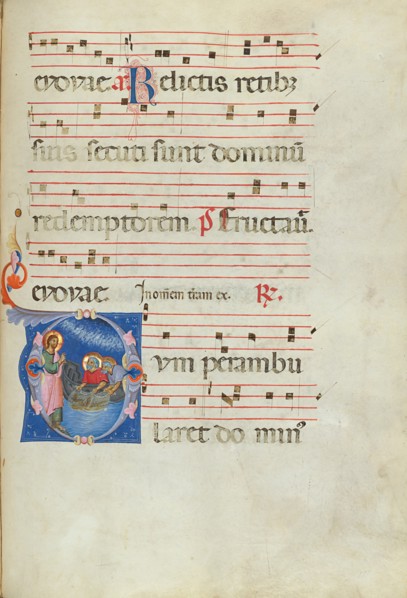 evovae. a. Relictis retibȝ
suis secuti sunt dominū
redemptorem. ps Eructaū.
evovae. In om̄em t̄ram ex. R̷.
um perambu
laret do min9